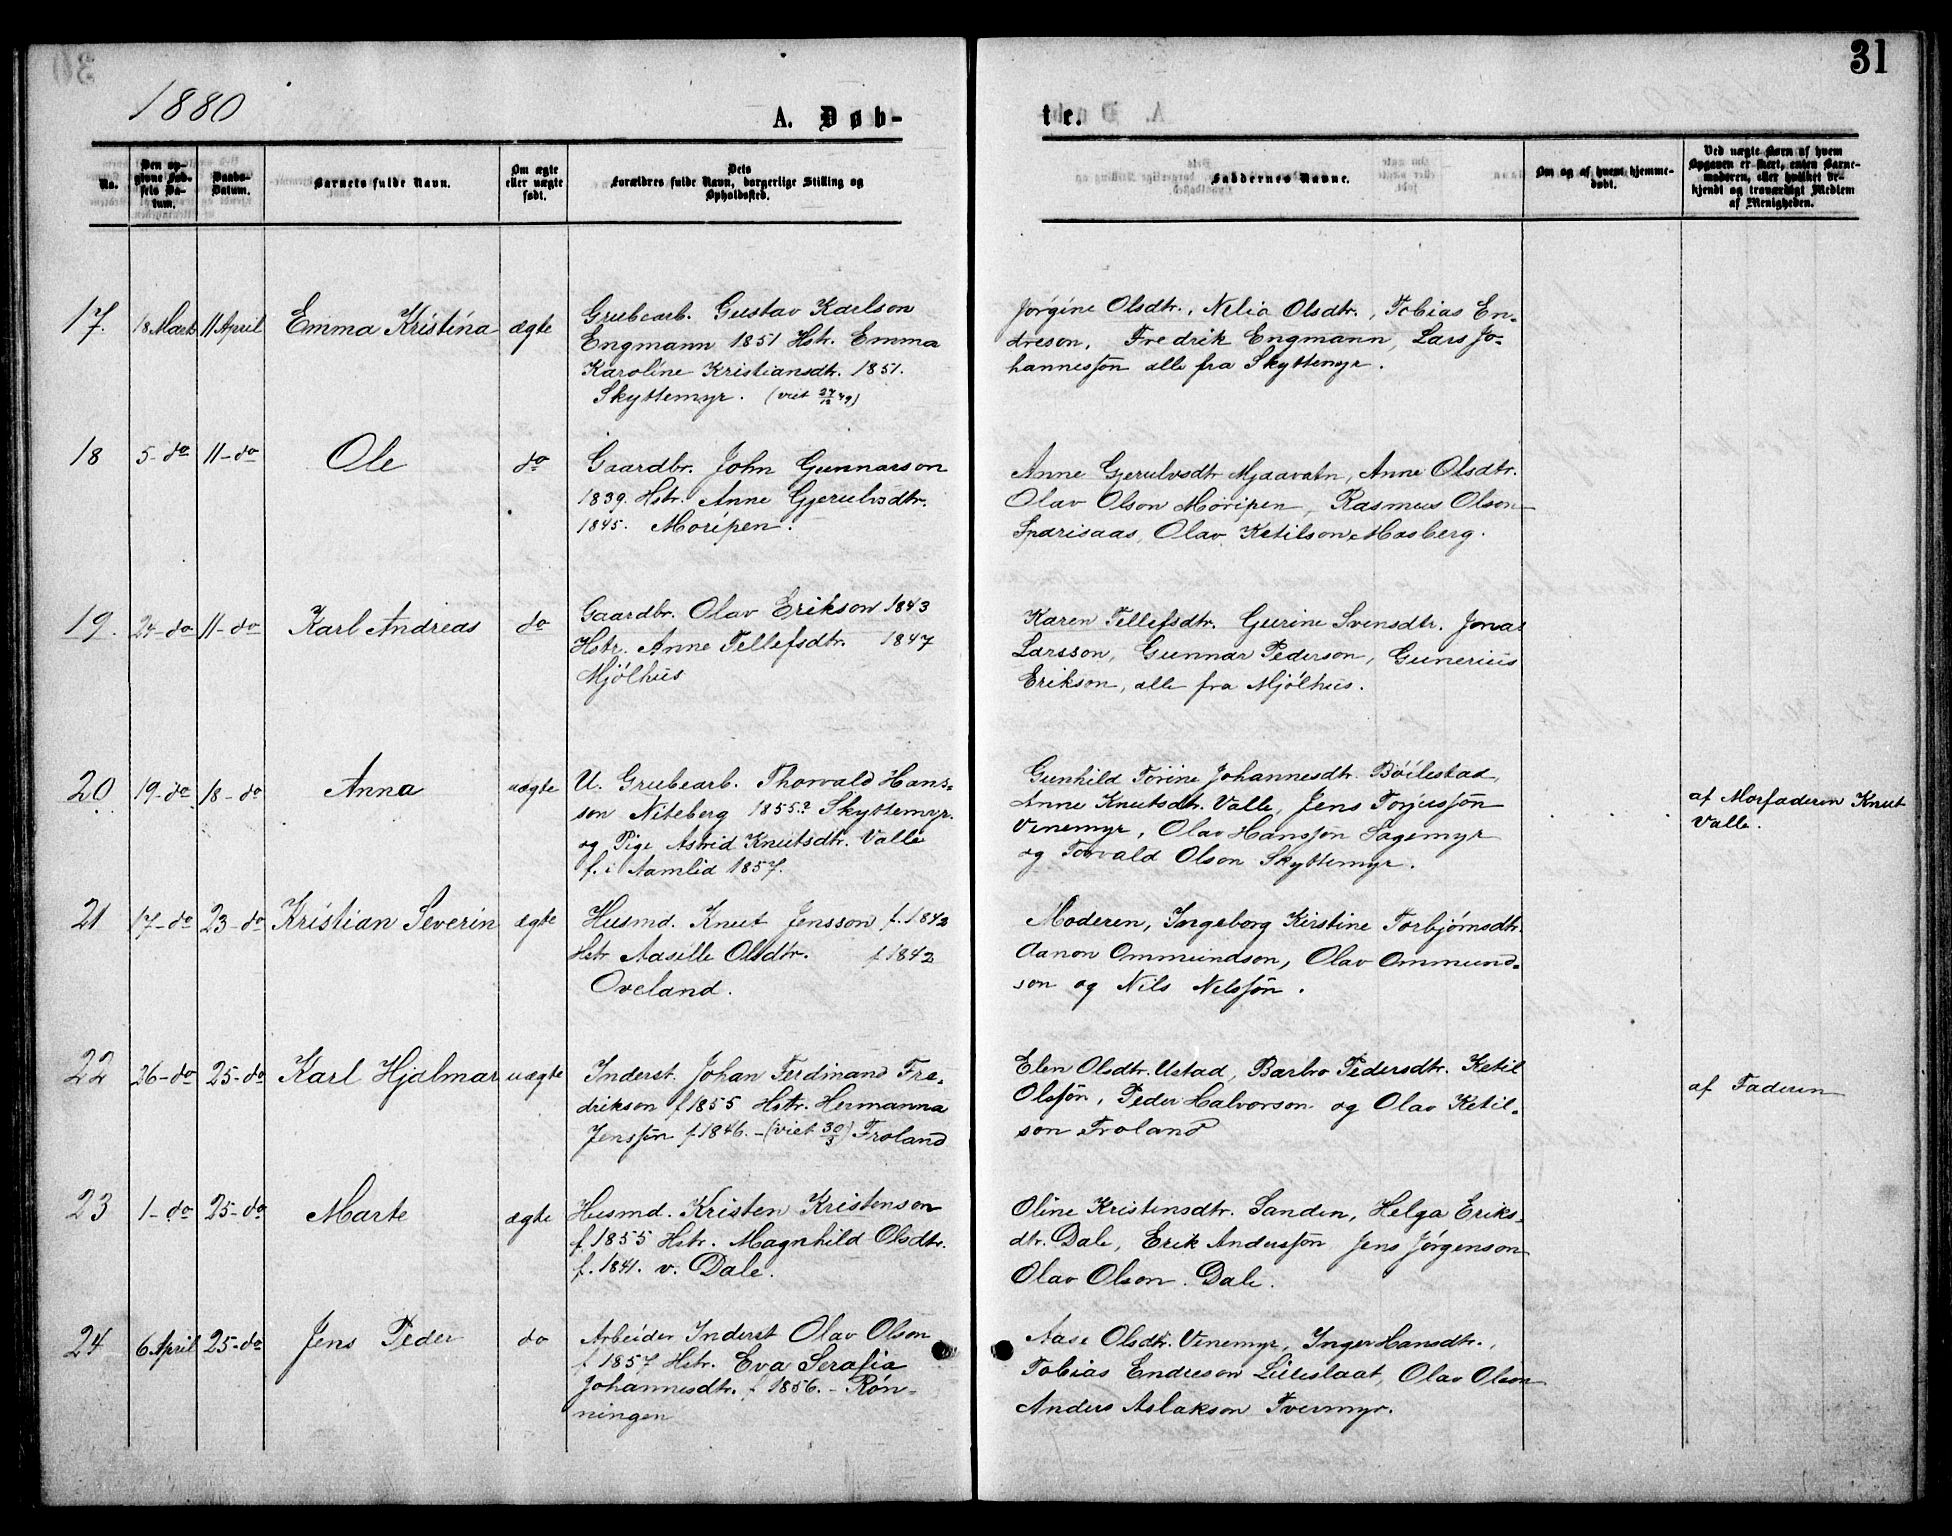 31
1880
A. Døb-
te.
No.
Den op-
givne Fød-
sels Da-
tum.
Daabs-
Datum.
Barnets fulde Navn.
Om ægte
eller uægte
født.
Dets
Forældres fulde Navn, borgerlige Stilling og
Opholdssted.
Faddernes Navne.
Om og af hvem hjemme-
døbt.
Ved uægte Børn af hvem
Opgaven er skeet, enten Barne-
moderen, eller hvilket be-
kjendt og troværdigt Medlem
af Menigheden.
17.
18 Marts
11 April
Emma Kristina
ægte
Grubearb. Gustav Karlson
Engmann 1851 Hstr. Emma
Karoline Kristiansdtr. 1851.
Skyttemyr. (viet 27/12 79)
Jørgine Olsdtr., Nilia Olsdtr., Tobias En-
dreson, Fredrik Engmann, Lars Jo-
hannesson alle fra Skyttemyr.
18
5-do
11-do
Ole
do
Gaardbr. John Gunnarson
1839. Hstr. Anne Gjerulvsdtr.
1845. Moripen.
Anne Gjerulvsdtr Mjaavatn, Anne Olsdtr.
Olav Olson Moripen, Rasmus Olson
Sparisaas, Olav Ketilson Masberg.
19.
24-do
11-do
Karl Andreas
do
Gaardbr. Olav Erikson 1843
Hstr. Anne Tellefsdtr. 1847
Mjølhus
Karen Tellefsdtr. Gurine Svensdtr. Jonas
Larsson, Gunnar Pederson, Gunerius
Erikson, alle fra Mjølhus.
20
19-do
18-do
Anna
uægte
U. Grubearb. Thorvald Hans-
son Niteberg 1855? Skyttemyr.
og Pige Astrid Knutsdtr. Valle
f. i Aamlid 1857.
Gunhild Torine Johannesdtr. Bøilestad,
Anne Knutsdtr. Valle, Jens Torjusson
Vinemyr, Olav Hansson Sagemyr
og Torvald Olson Skyttemyr.
af Morfaderen Knut
Valle.
21
17-do
23-do
Kristian Severin
ægte
Husmd. Knut Jensson f. 1842
Hstr Aasille Olsdtr. f 1842
Oveland.
Moderen, Ingeborg Kirstine Torbjørnsdtr.
Aanon Ommundson, Olav Ommund-
son og Nils Nelssøn.
22
26-do
25-do
Karl Hjalmar
uægte
Inderst. Johan Ferdinand Fre-
drikson f 1855 Hstr. Hermanna
Jenssøn f 1846. - (viet 30/3) Froland
Elen Olsdtr. Ustad, Barbro Pedersdtr. Ketil
Olssøn, Peder Halvorson og Olav Ketil-
son Froland
af Faderen
23
1-do
25-do
Marte
ægte
Husmd. Kristen Kristenson
f. 1855 Hstr. Magnhild Olsdtr.
f. 1841. v. Dale.
Oline Kristensdtr. Sanden, Helga Eriks-
dtr. Dale, Erik Anderssøn Jens Jørgenson
Olav Olson. Dale.
24
6 April
25-do
Jens Peder
do
Arbeider Inderst Olav Olson
f 1857 Hstr. Eva Serafia
Johannesdtr. f 1856. - Røn-
ningen
Aase Olsdtr. Vinemyr, Inger Hansdtr.,
Tobias Endreson Lilleslaat, Olav Olson
Anders Aslakson Tvermyr.